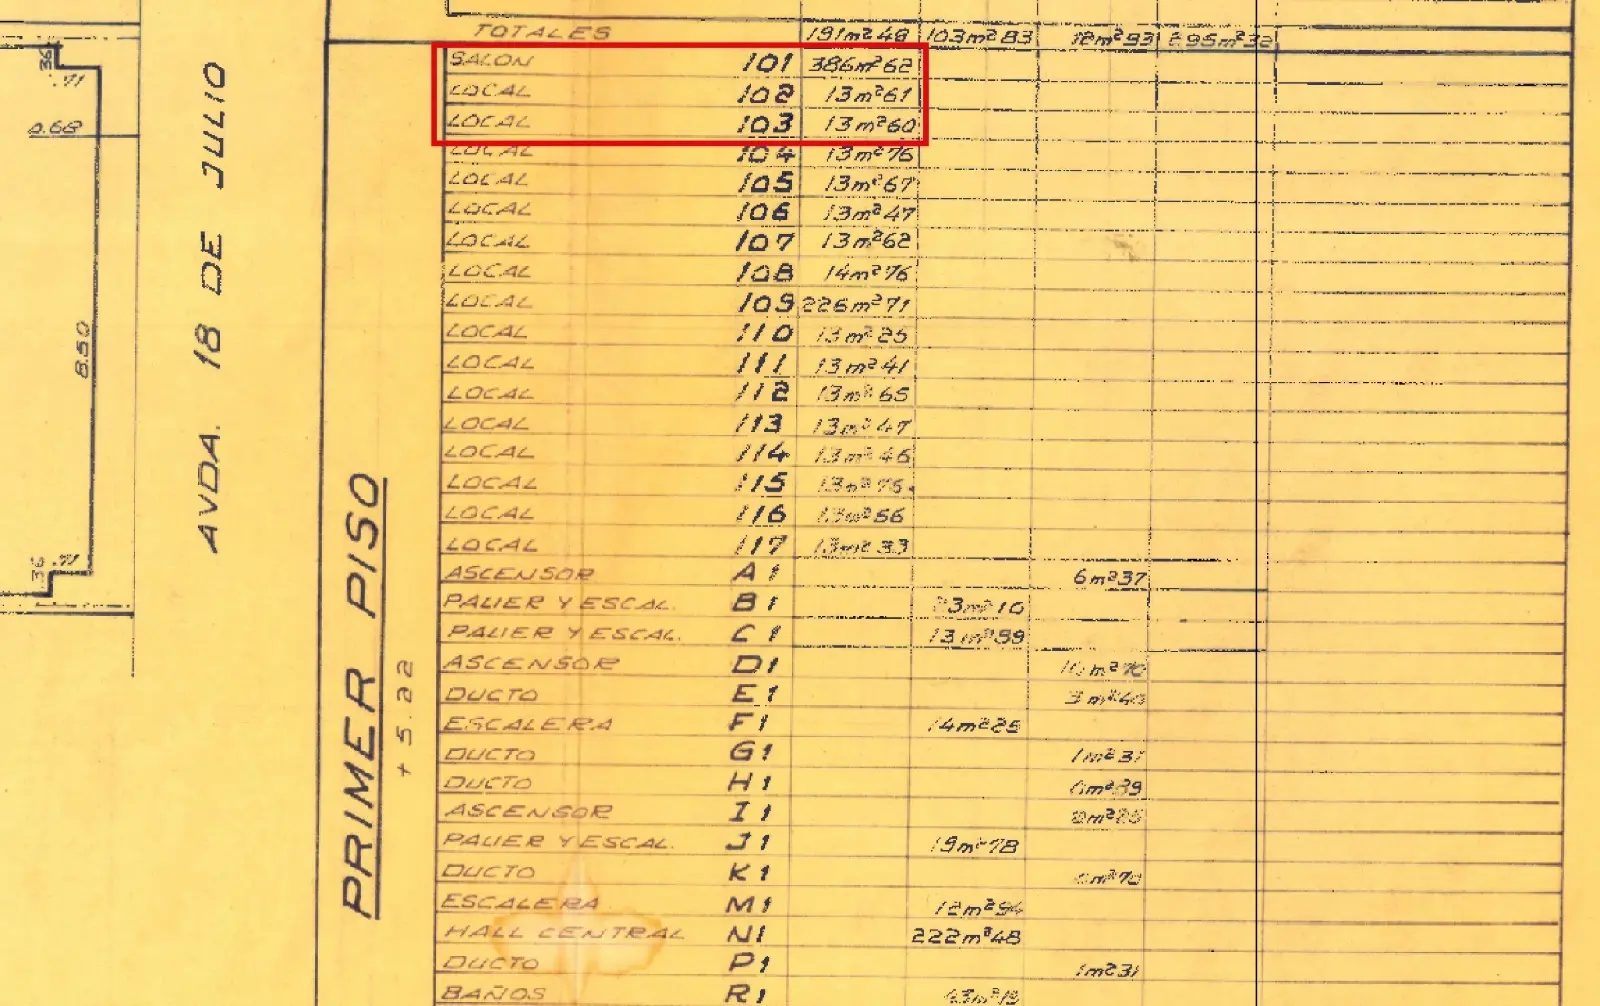 TOTALES 191m²48 103m²83 12m²93 295m²32
SALON 101 386m²62
LOCAL 102 13m²61
LOCAL 103 13m²60
LOCAL 104 13m²76
LOCAL 105 13m²67
LOCAL 106 13m²47
LOCAL 107 13m²62
LOCAL 108 14m²76
LOCAL 109 226m²71
LOCAL 110 13m²25
LOCAL 111 13m²41
LOCAL 112 13m²65
LOCAL 113 13m²47
LOCAL 114 13m²46
LOCAL 115 13m²76
LOCAL 116 13m²56
LOCAL 117 13m²33
ASCENSOR A1 6m²37
PALIER Y ESCAL. B1 23m²10
PALIER Y ESCAL. C1 13m²99
ASCENSOR D1
DUCTO E1 3m²40
ESCALERA F1 14m²25
DUCTO G1 1m²31
DUCTO H1
ASCENSOR I1
PALIER Y ESCAL. J1 19m²78
DUCTO K1
ESCALERA M1 12m²94
HALL CENTRAL N1 222m²48
DUCTO P1 1m²31
BAÑOS R1
PRIMER PISO
+ 5.22
AVDA. 18 DE JULIO
.36
.71
0.68
8.50
.36
.71